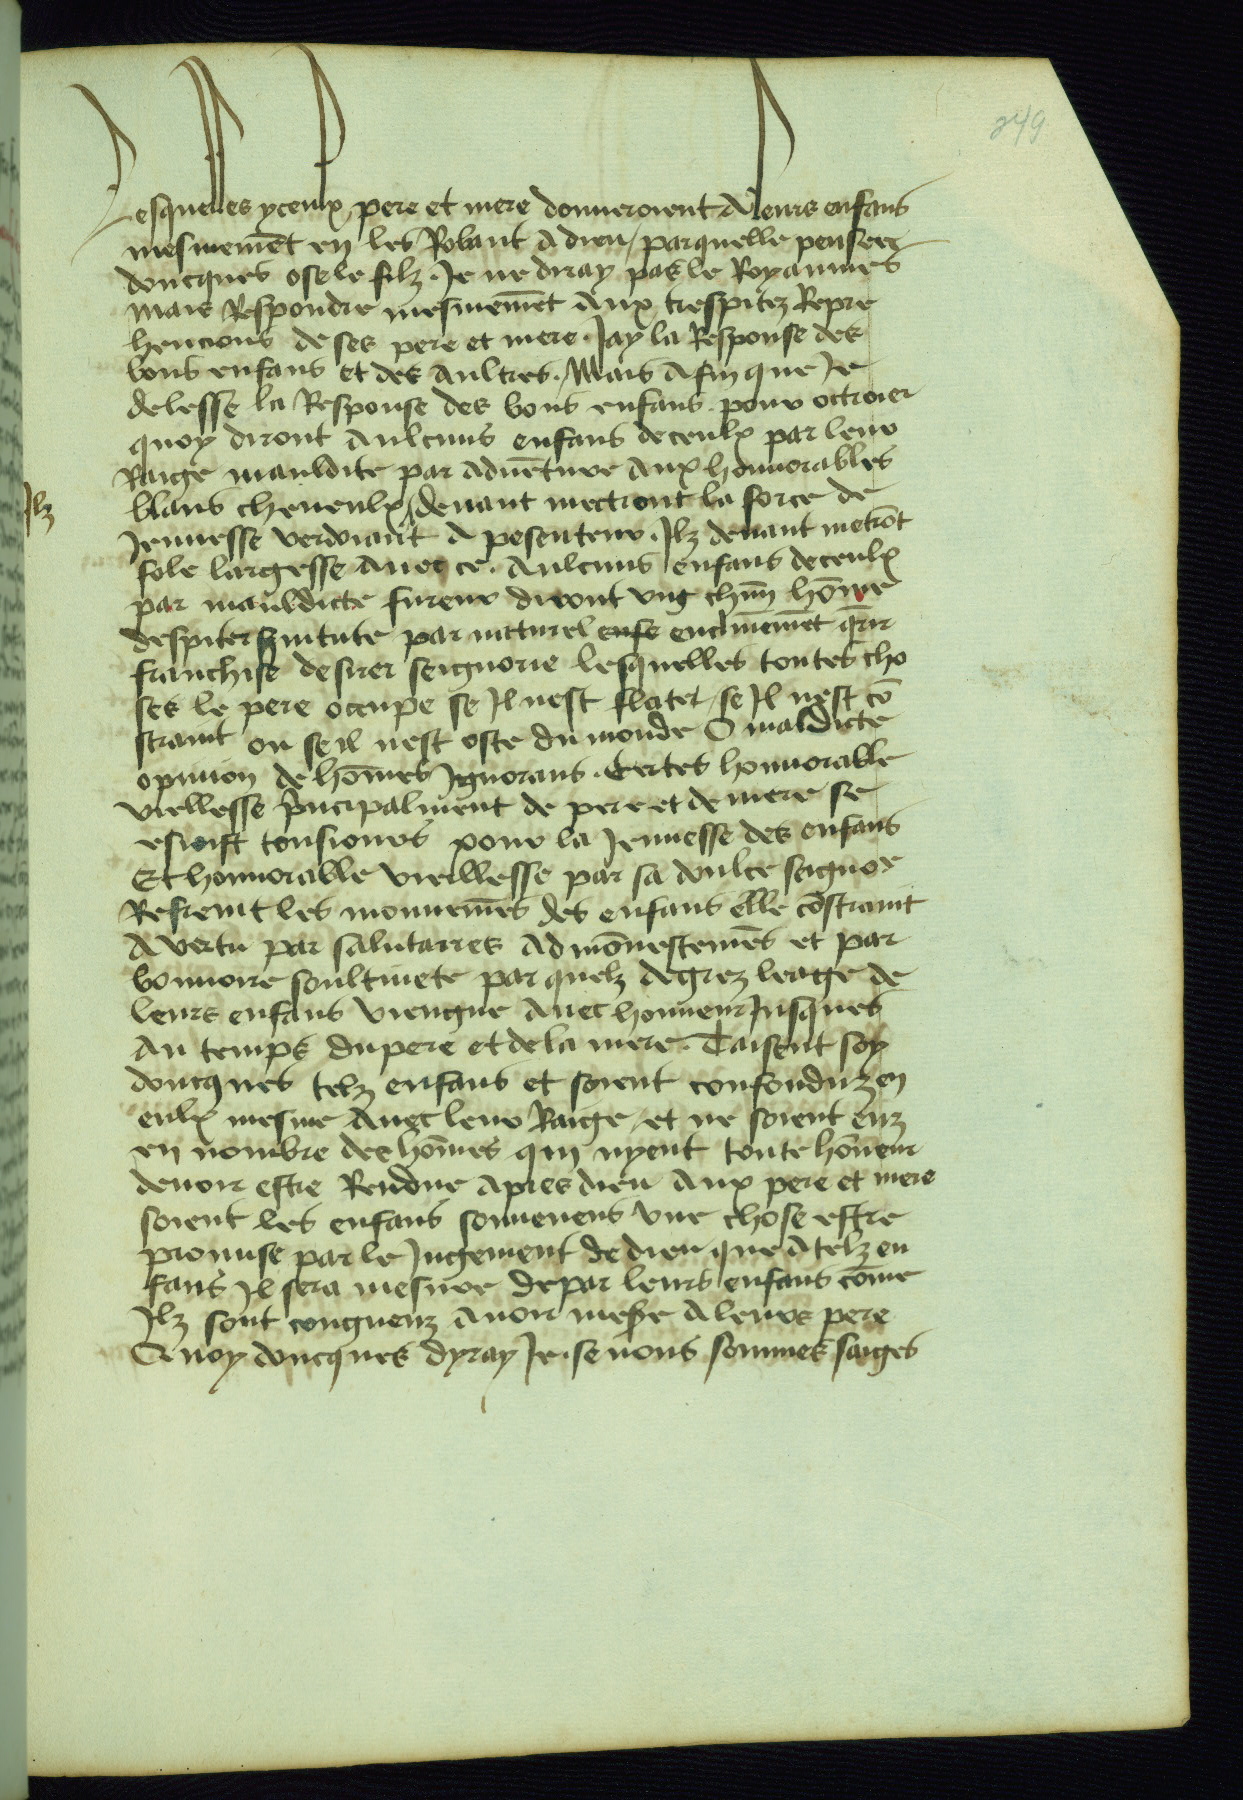 249
Lesquelles yceulx pere et mere donneroient A leurs enfans
mesmemēt en les Robant A dieu / par quelle pensee
doncques ose le filz . Je ne diray pas le Royaumes
Mais Respondre mesmemēt Aux trespitez Repre
hencions de ses pere et mere . Jay la Response des
bons enfans et des Aultres . Mais Afin que Je
delesse la Response des bons enfans . pour octroier
quoy diront Aulcuns enfans deceulx par leur
Raige mauldite par aduēture Aux honnorables
Ilz
blans cheueulx / deuant mectront la force de
Jeunesse verdoiant A pesenteur . Ilz deuant metrōt
fole largesse Auec ce . Aulcuns enfans deceulx
par mauldicte fureur diront vng chūn hōme
despiter suitute par naturel enclinemēt q̄rir
franchise desirer seignorie lesquelles toutes cho
ses le pere occupe se Il nest flater / se Il nest cō
straint ou seil nest oste du monde O maldicte
opinion de hōmes Ignorans . Certes honnorable
viellesse p̄ncipalment de pere et de mere se
esioist tousiours pour la Jeunesse des enfans
Et honnorable vieillesse par sa doulce seignor
Refreint les mouuemēs des enfans elle cōstraint
A vertu par salutaires Admōnestemēs et par
bonnoire soultiuete par quelz degrez leage de
leurs enfans viengne Auec honneur Jusques
Au temps du pere et de la mere . Taisent soy
doncques telz enfans et soient confonduz en
eulx mesme Auec leur Raige / et ne soient euz
en nombre des hōmes qui nyent toute hōneur
deuoir estre Rendue Apres dieu Aux pere et mere
soient les enfans souuenens vne chose estre
promise par le Jugement de dieu que A telz en
fans Il sera mesure de par leurs enfans cōme
Ilz sont congneuz Auoir A leurs pere
Quoy doncques dyray Je . se nous sommes saiges